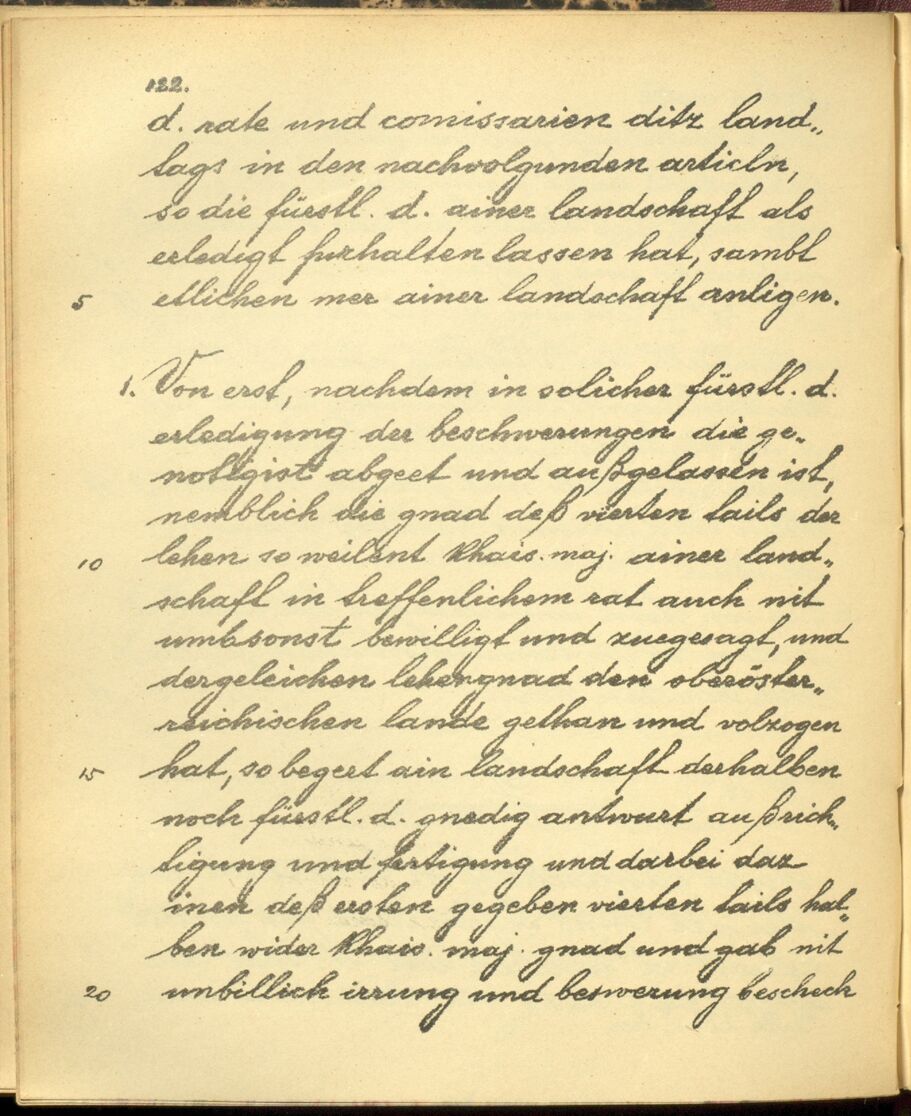 122.
d. rate und comissarien ditz land„
tags in den nachvolgunden articln,
so die fürstl. d. ainer landschaft als
erledigt furhalten lassen hat, sambt
5 etlichen mer ainer landschaft anligen.
1. Von erst, nachdem in solicher fürstl. d.
erledigung der beschwerungen die ge„
nottgist abgeet und außgelassen ist,
nemblich die gnad deß vierten tails der
10 lehen so weilent khais. maj. ainer land„
schaft in treffenlichem rat auch nit
umbsonst bewilligt und zuegesagt, und
dergeleichen lehengnad den oberöster„
reichischen lande gethan und volzogen
15 hat, so begert ain landschaft derhalben
noch fürstl. d. gnedig antwurt außrich„
tigung und fertigung und darbei daz
inen deß ersten gegeben vierten tails hal„
ben wider khais. maj. gnad und gab nit
20 unbillich irrung und beswerung beschech